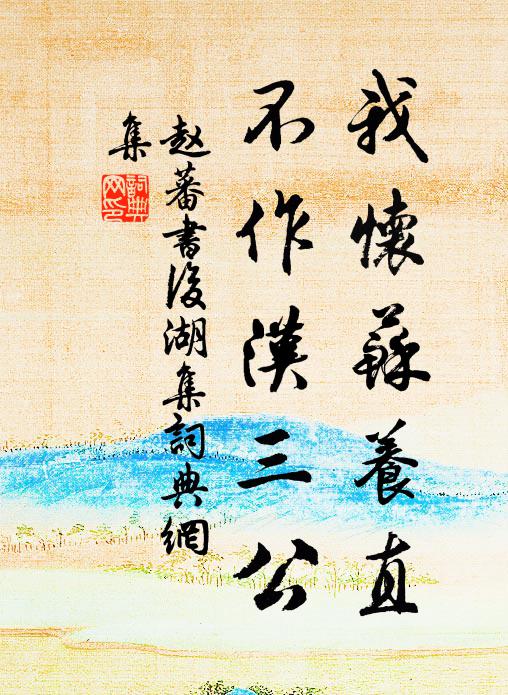 我懷蘇養直
不作漢三公
赵蕃書後湖集詞典網
集
詞典
网印